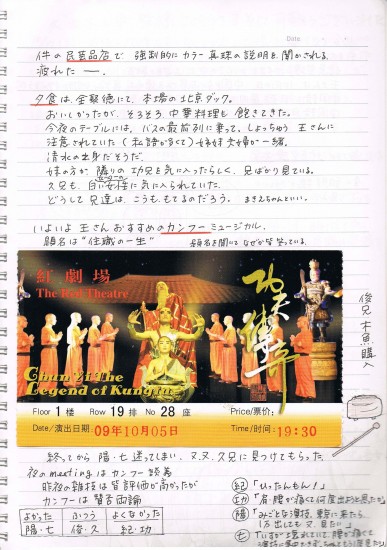 Date
件の民芸品店で 強制的にカラー真珠の説明を聞かされる。
疲れたー。
夕食は、全聚徳にて、本場の北京ダック。
おいしかったが、そろそろ、中華料理も飽きてきた。
今夜のテーブルには、バスの最前列に乗って、しょっちゅう 王さんに
注意されていた(私語が多くて)姉妹夫婦が一緒。
清水の出身だそうだ。
妹の方が隣りの功兄を気に入ったらしく、兄ばかり見ている。
久兄も、白い女性に気に入られていた。
どうして兄達は、こうも、もてるのだろう。
いよいよ王さんおすすめのカンフーミュージカル。
題名は"住職の一生"
題名を聞いてなぜか皆笑っている。
紅劇場
The Red Theatre
功夫傳奇
Chun Yi: The
Legend of Kungfu
Floor 1 楼 Row 19 排 No 28 座
Price/票价:
Date/演出日期: 09年10月05日
Time/时间: 19:30
俊兄 木魚購入
終わってから 陽・七 迷ってしまい、又、又、久兄に見つけてもらった
夜のmeetingは カンフー談義
昨夜の雑技は皆評価が高かったが
カンフーは賛否両論
よかった ふつう よくなかった
陽・七 俊・久 紀・功
紀 「いったんもん!
功 「肩・腰が痛くて何度出ようと思ったか」
陽 「みごとな演技、東京に来たら、
1万出しても又見たい」
七 「いすが壊れていて、腰が痛くて